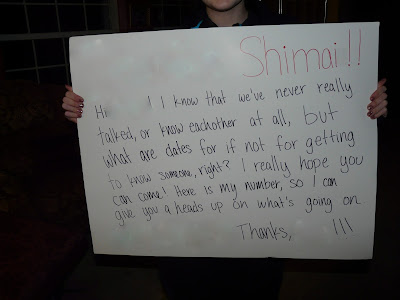 Shimai!!
Hi ! I know that we've never really
talked, or know eachother at all, but
what are dates for if not for getting
to know someone, right? I really hope you
can come! Here is my number, so I can
give you a heads up on what's going on.
Thanks, !!!